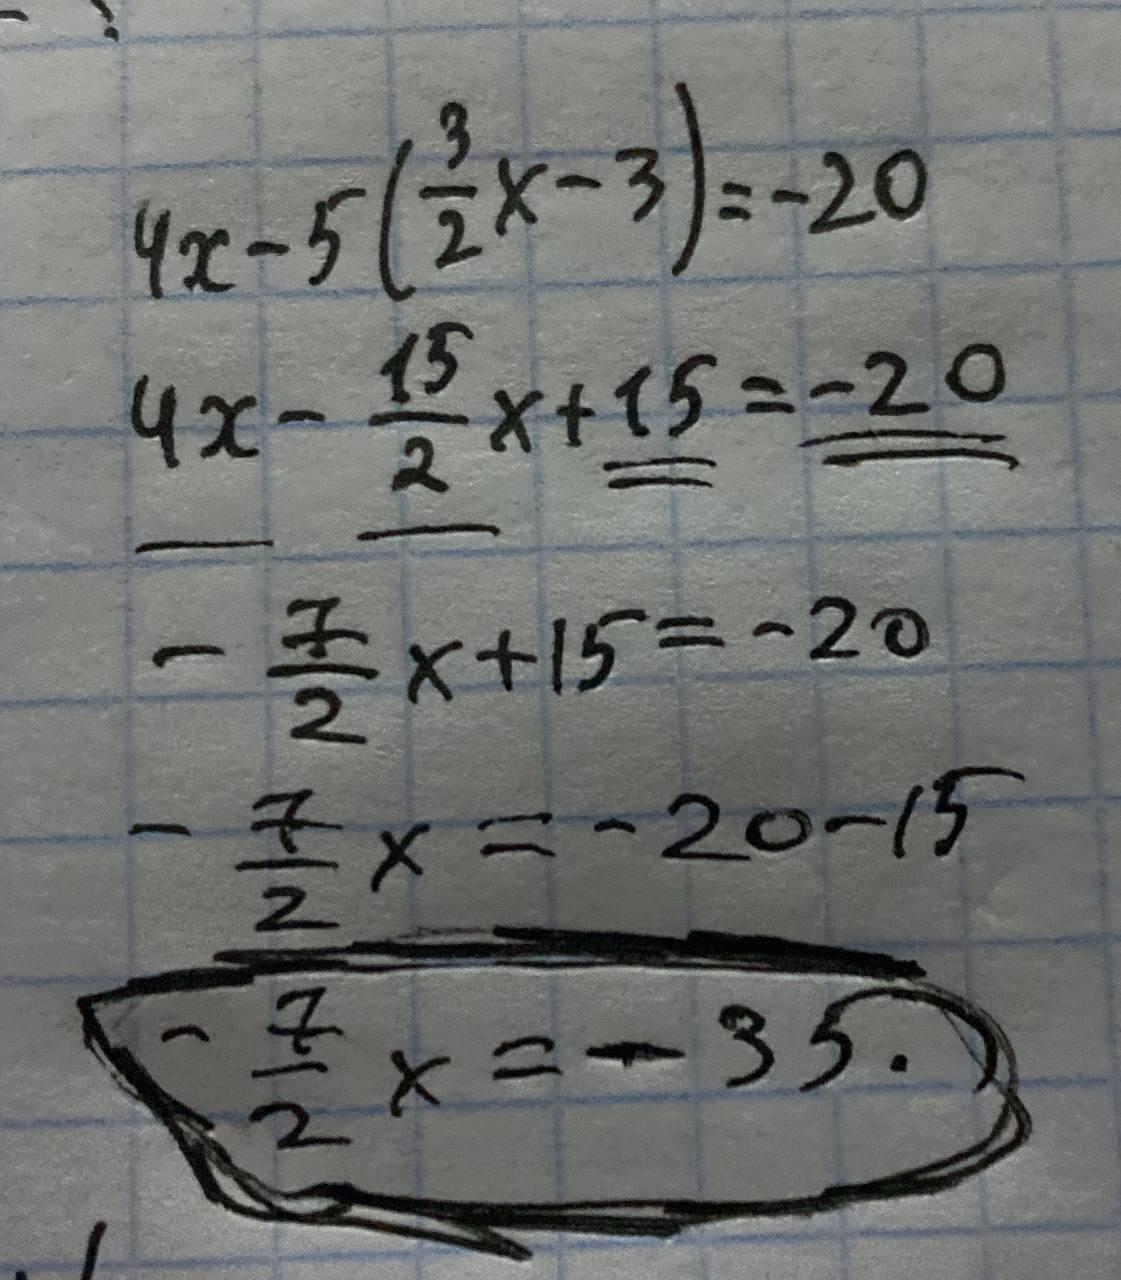 4x - 5(3/2 x - 3) = -20
4x - 15/2 x + 15 = -20
- 7/2 x + 15 = -20
- 7/2 x = -20 - 15
- 7/2 x = - 35.